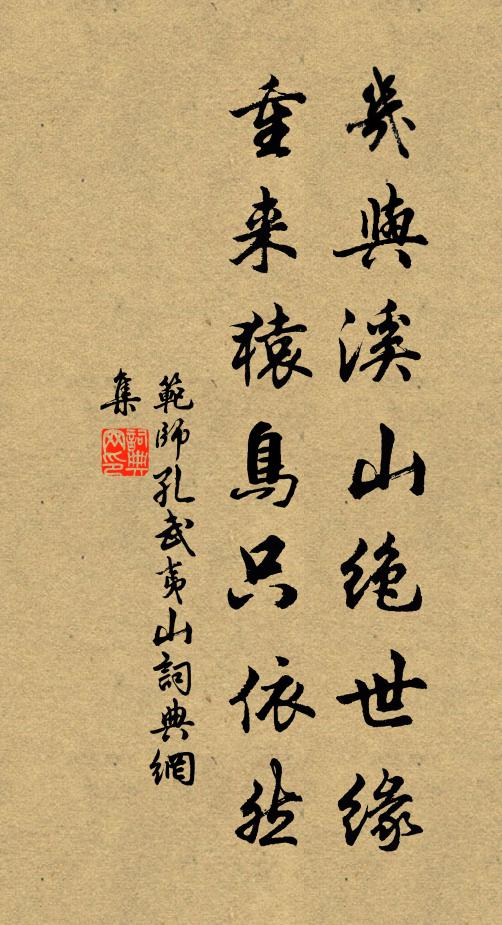 幾與溪山絶世緣
重来猿鳥只依然
範師孔武夷山詞典網
集
詞典网印